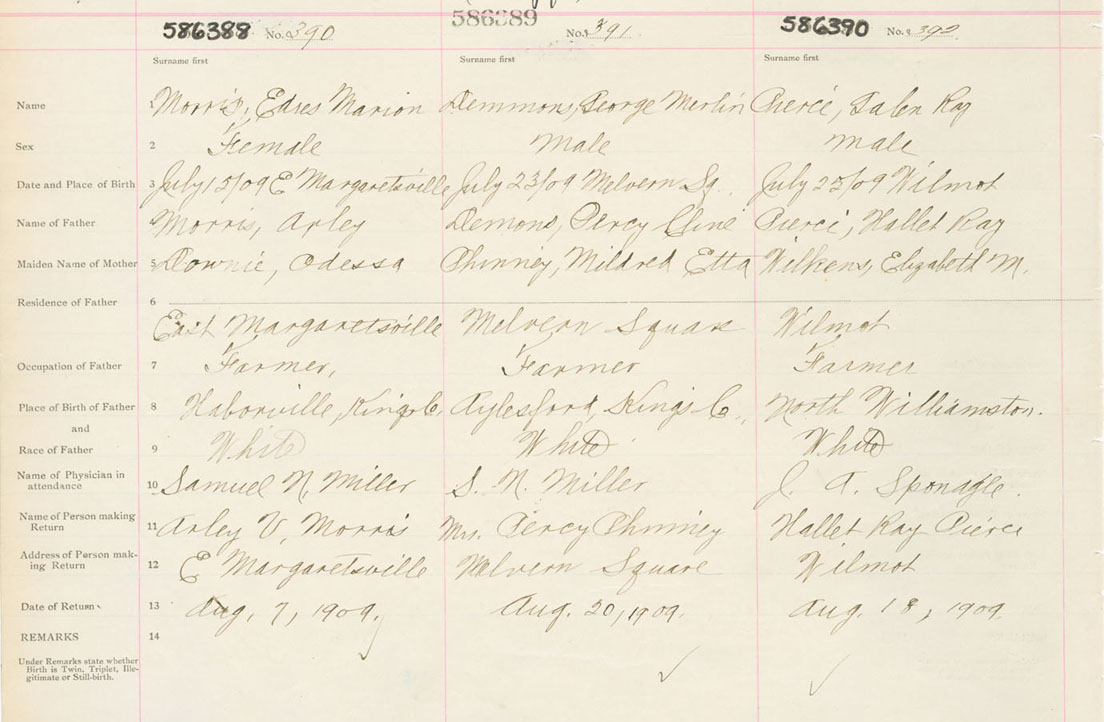 586388 No. 390 586389 No. 391 586390 No. 392
Surname first Surname first Surname first
Name 1 Morris, Edres Marion Demmons, George Merlin Pierce, Galen Ray
Sex 2 Female Male Male
Date and Place of Birth 3 July 15/09 E Margaretsville July 23/09 Melvern Sq. July 23/09 Wilmot
Name of Father 4 Morris, Arley Demons, Percy Cline Pierce, Hallet Ray
Maiden Name of Mother 5 Downie, Odessa Phinney, Mildred Etta Wilkens, Elizabeth M.
Residence of Father 6
East Margaretsville Melvern Square Wilmot
Occupation of Father 7 Farmer, Farmer Farmer
Place of Birth of Father 8 Haborville, Kings Co Aylesford, Kings Co., North Williamston.
and
Race of Father 9 White White White
Name of Physician in attendance 10 Samuel N. Miller S. N. Miller J. A. Sponagle.
Name of Person making Return 11 Arley V. Morris Mrs. Percy Phinney Hallet Ray Pierce
Address of Person mak-ing Return 12 E Margaretsville Melvern Square Wilmot
Date of Return 13 Aug. 7, 1909. Aug. 20, 1909. Aug. 18, 1909
REMARKS 14
Under Remarks state whether
Birth is Twin, Triplet, Ille-
gitimate or Still-birth.